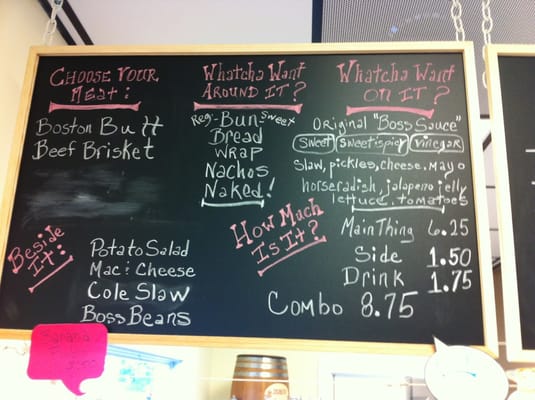 CHOOSE YOUR
MEAT:
Boston Butt
Beef Brisket
WHATCHA WANT
AROUND IT?
Reg-BUN sweet
BREAD
WRAP
NACHOS
NAKED!
WHATCHA WANT
ON IT?
ORIGINAL "BOSS SAUCE"
SWEET SWEET&SPICY VINEGAR
SLAW, PICKLES, CHEESE, MAYO
HORSERADISH, JALAPENO JELLY
LETTUCE, TOMATOES
BESIDE
IT:
POTATO SALAD
MAC & CHEESE
COLE SLAW
BOSS BEANS
HOW MUCH
IS IT?
MAIN THING 6.25
SIDE 1.50
DRINK 1.75
COMBO 8.75
BANANA